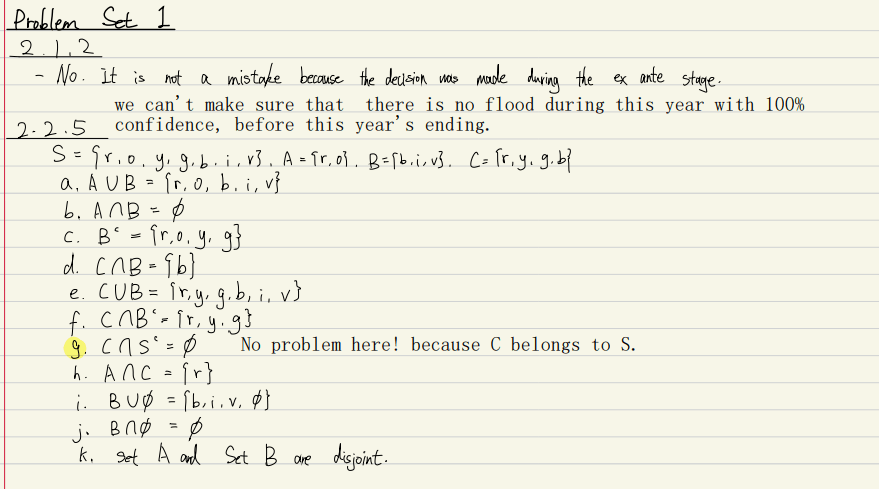 Problem Set 1
2.1.2
- No. It is not a mistake because the decision was made during the ex ante stage.
we can't make sure that there is no flood during this year with 100%
confidence, before this year's ending.
2.2.5
S = {r, o, y, g, b, i, v}. A = {r, o}. B = {b, i, v}. C = {r, y, g, b}
a. A ∪ B = {r, o, b, i, v}
b. A ∩ B = ∅
c. Bᶜ = {r, o, y, g}
d. C ∩ B = {b}
e. C ∪ B = {r, y, g, b, i, v}
f. C ∩ Bᶜ = {r, y, g}
g. C ∩ Sᶜ = ∅ No problem here! because C belongs to S.
h. A ∩ C = {r}
i. B ∪ ∅ = {b, i, v, ∅}
j. B ∩ ∅ = ∅
k. set A and Set B are disjoint.